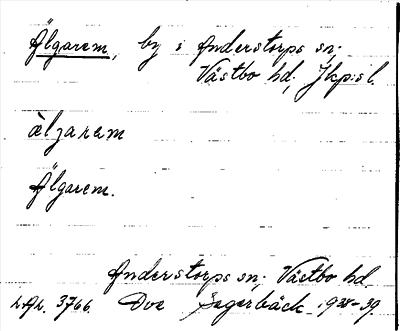 Älgarem, by i Anderstorps sn;
Västbo hd; Jkp:s l.
àlgarem
Älgarem.
Anderstorps sn; Västbo hd.
3766. Ove 1938-39.